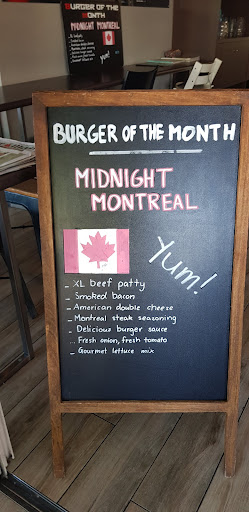 BURGER OF THE
MONTH
MIDNIGHT MONTREAL
yum!
BURGER OF THE MONTH
MIDNIGHT
MONTREAL
Yum!
_ XL beef patty
_ Smoked bacon
_ American double cheese
_ Montreal steak seasoning
_ Delicious burger sauce
_ Fresh onion, fresh tomato
_ Gourmet lettuce mix